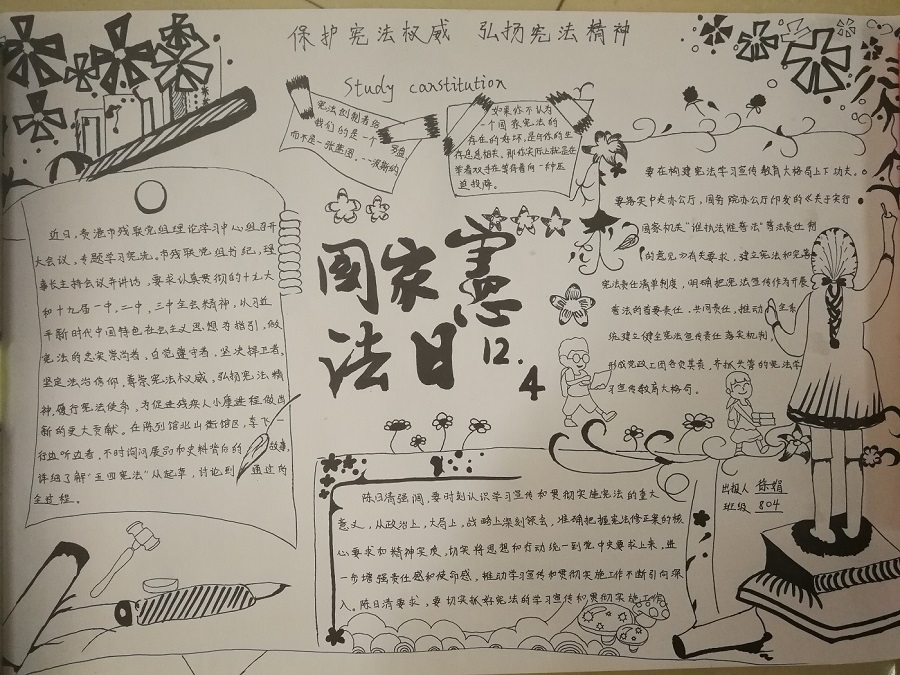 保护宪法权威 弘扬宪法精神
Study constitution
宪法创制者给
我们的是一个罗盘
而不是一张蓝图。--波斯纳
如果你不认为
一个国家宪法的
存在的好坏,是与你的生
存息息相关。那你实际上就是在
举着双手在等待着向一种压
迫投降。
近日,贵港市残联党组理论学习中心组召开
大会议,专题学习宪法。市残联党组书纪,理
事长主持会议并讲话,要求认真贯彻的十九大
和十九届一中,二中,三中全会精神,以习近
平新时代中国特色社会主义思想为指引,做
宪法的忠实崇尚者,自觉遵守者,坚决捍卫者,
坚定法治信仰,尊崇宪法权威,弘扬宪法精
神,履行宪法使命,为促进残疾人小康进程做出
新的更大贡献。在陈列馆北山街馆区,车飞一
行边听边看,不时询问展品和史料背后的故事,
详细了解"五四宪法"从起草,讨论到通过的
全过程。
国家憲
法日12.
4
要在构建宪法学习宣传教育大格局上下功夫。
要落实中央办公厅,国务院办公厅印发的《关于实行
国家机关"谁执法谁普法"普法责任制
的意见》有关要求,建立宪法和完善
宪法责任清单制度,明确把宪法宣传作为开展
普法的首要责任,共同责任,推动
统建立健全宪法宣传责任落实机制。
形成党政工团各负其责,齐抓共管的宪法学
习宣传教育大格局。
陈日清强调,要时刻认识学习宣传和贯彻实施宪法的重大
意义,从政治上,大局上,战略上深刻领会,准确把握宪法修正案的核
心要求和精神实质,切实将思想和行动统一到党中央要求上来,进
一步增强责任感和使命感,推动学习宣传和贯彻实施工作不断引向深
入。陈日清要求,要切实抓好宪法的学习宣传和贯彻实施工作
出报人 徐娟
班级 804